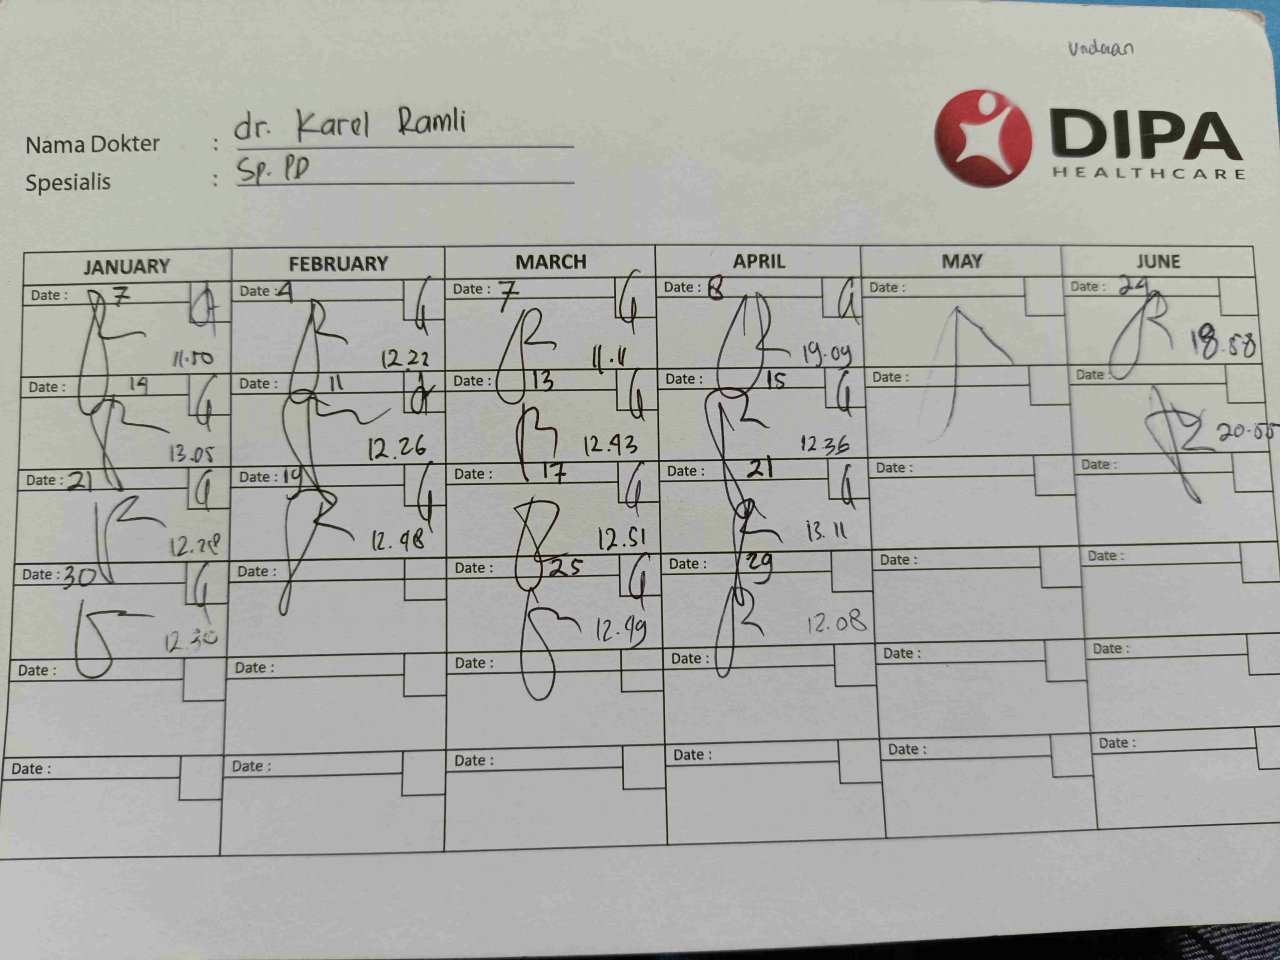 Undaan
DIPA
HEALTHCARE
Nama Dokter : dr. Karel Ramli
Spesialis : Sp. PD
JANUARY FEBRUARY MARCH APRIL MAY JUNE
Date : 7 Date : 4 Date : 7 Date : 8 Date : Date : 24
11.50 12.22 11.11 19.09 18.58
Date : 14 Date : 11 Date : 13 Date : 15 Date : Date :
13.05 12.26 12.43 12.36 20.55
Date : 21 Date : 19 Date : 17 Date : 21 Date : Date :
12.48 12.51 13.11
Date : 30 Date : Date : 25 Date : 29 Date : Date :
12.30 12.49 12.08
Date : Date : Date : Date : Date : Date :
Date : Date : Date : Date : Date : Date :